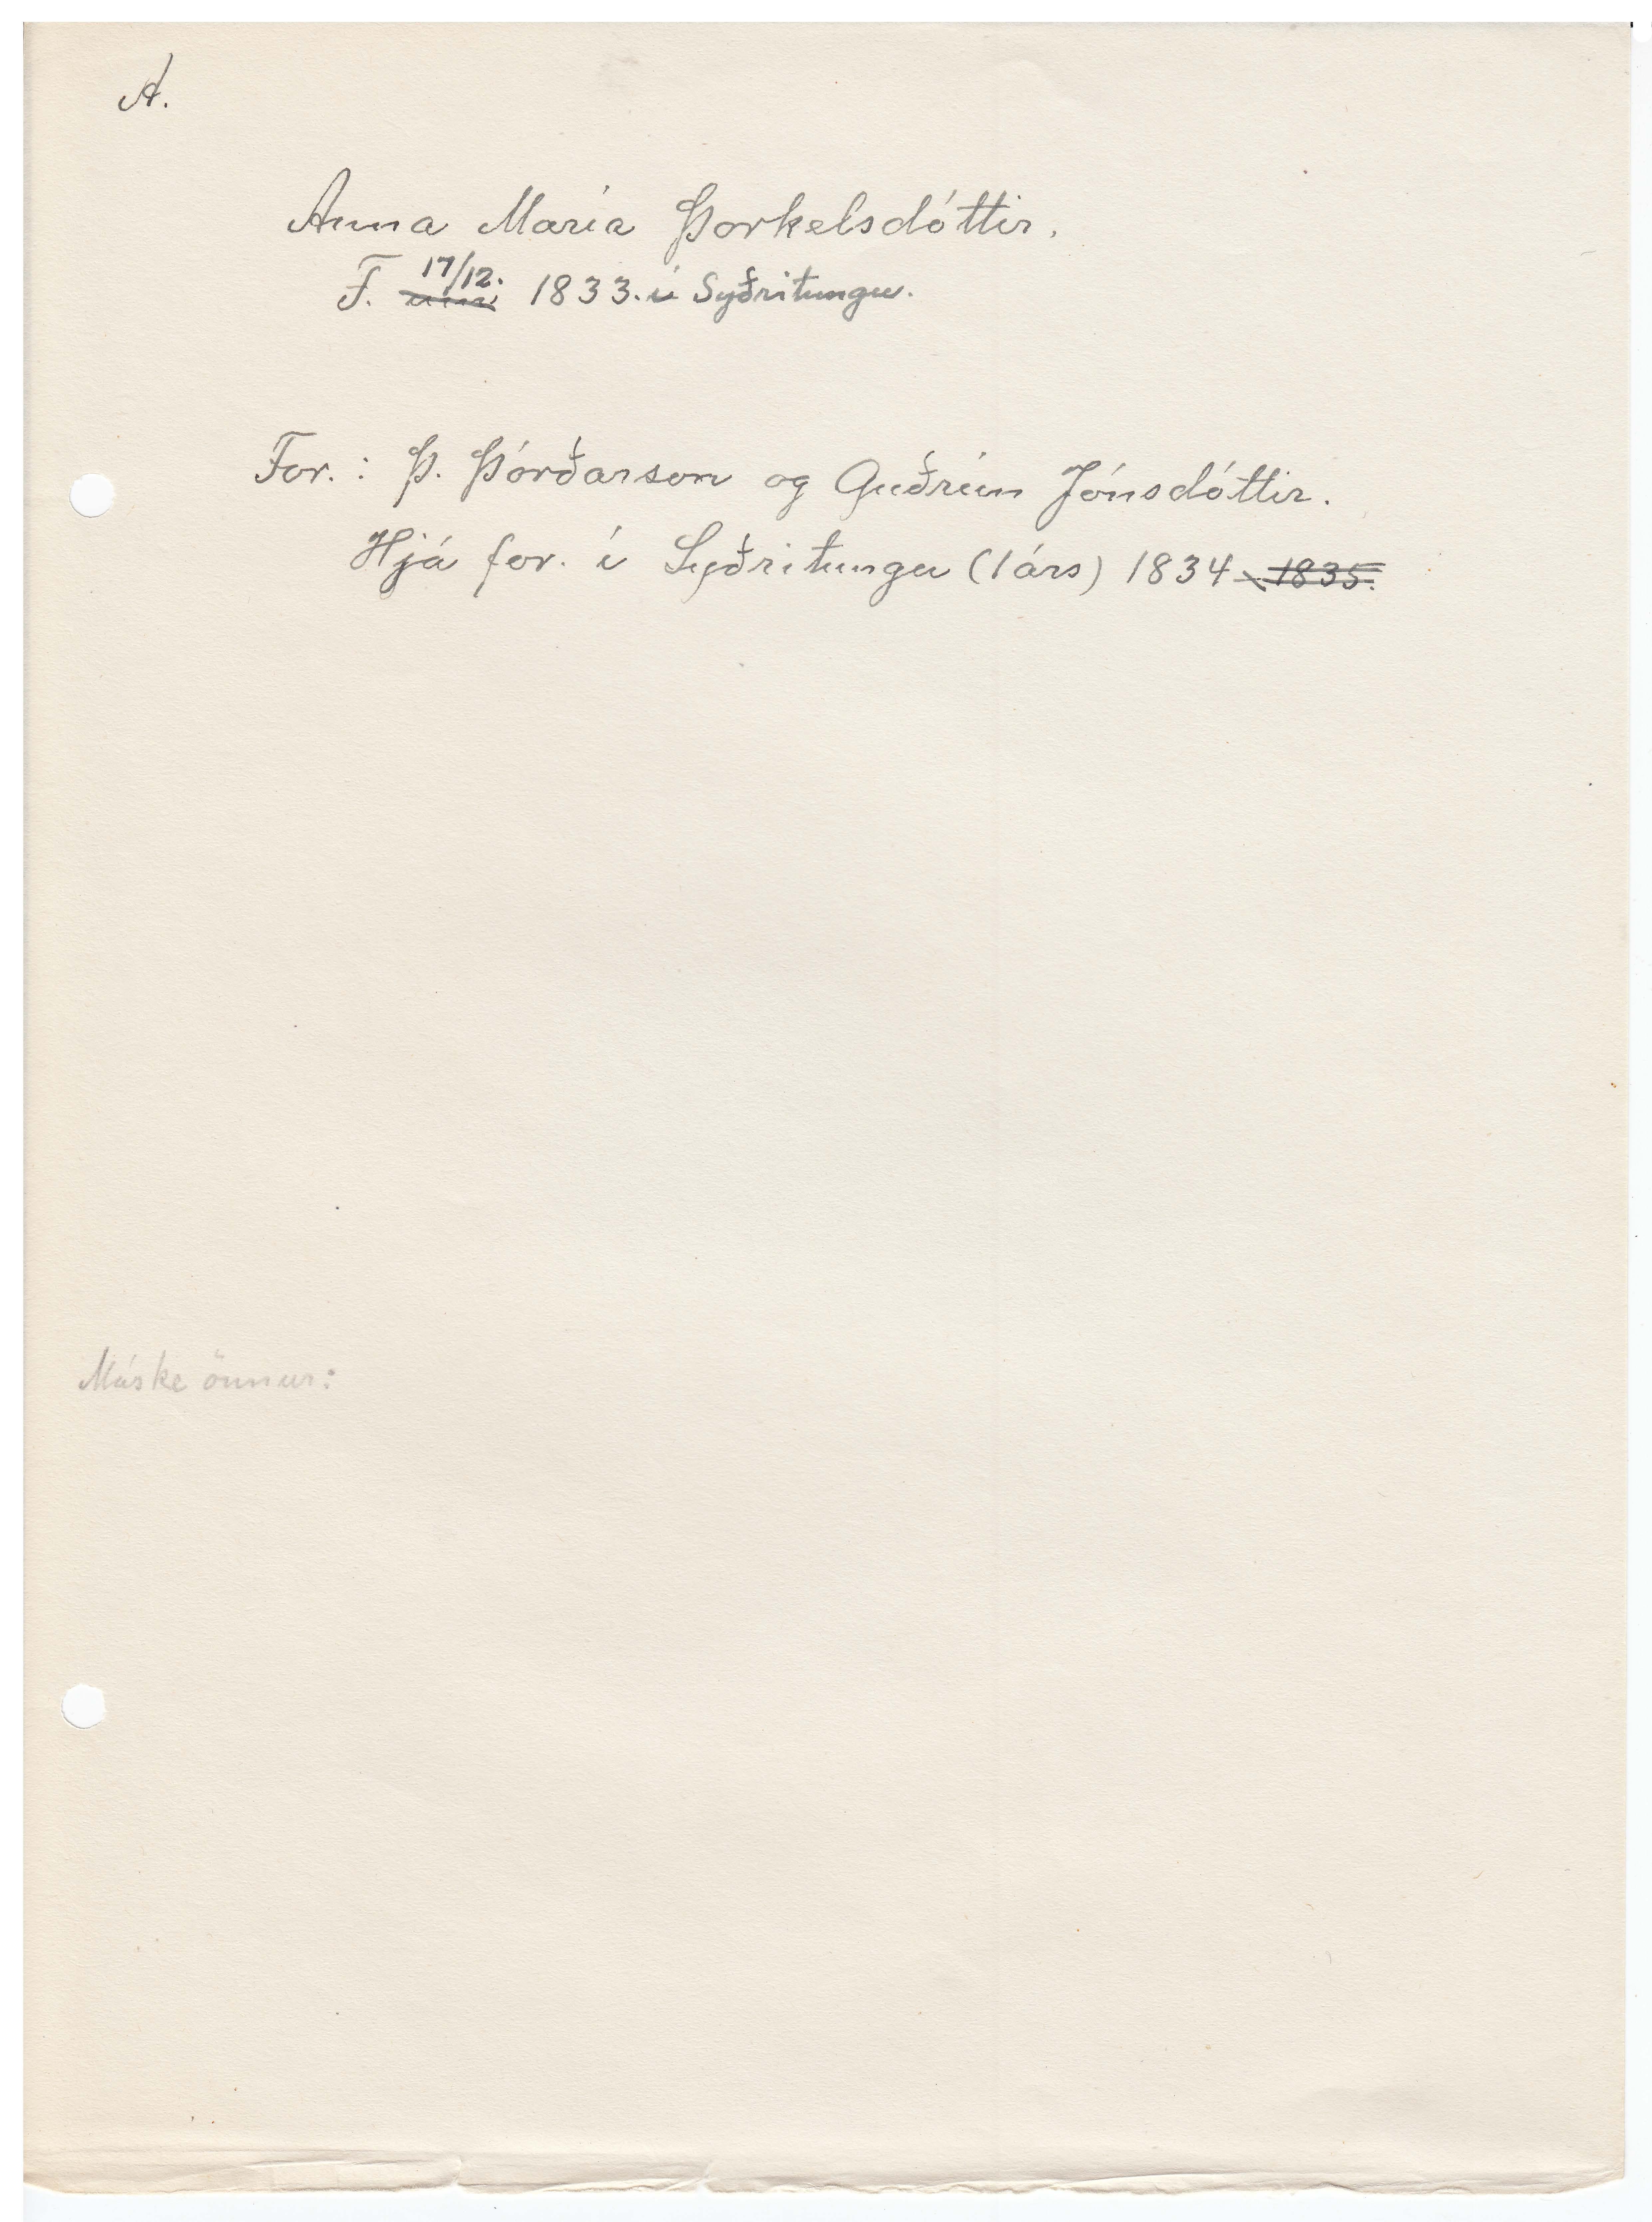 A.
Anna María Þorkelsdóttir.
F. 17/12. 1833. í Syðritungu.
For.: Þ. Þórðarson og Guðrún Jónsdóttir.
Hjá for. í Syðritungu (1 árs) 1834 - 1835.
Máske önnur: